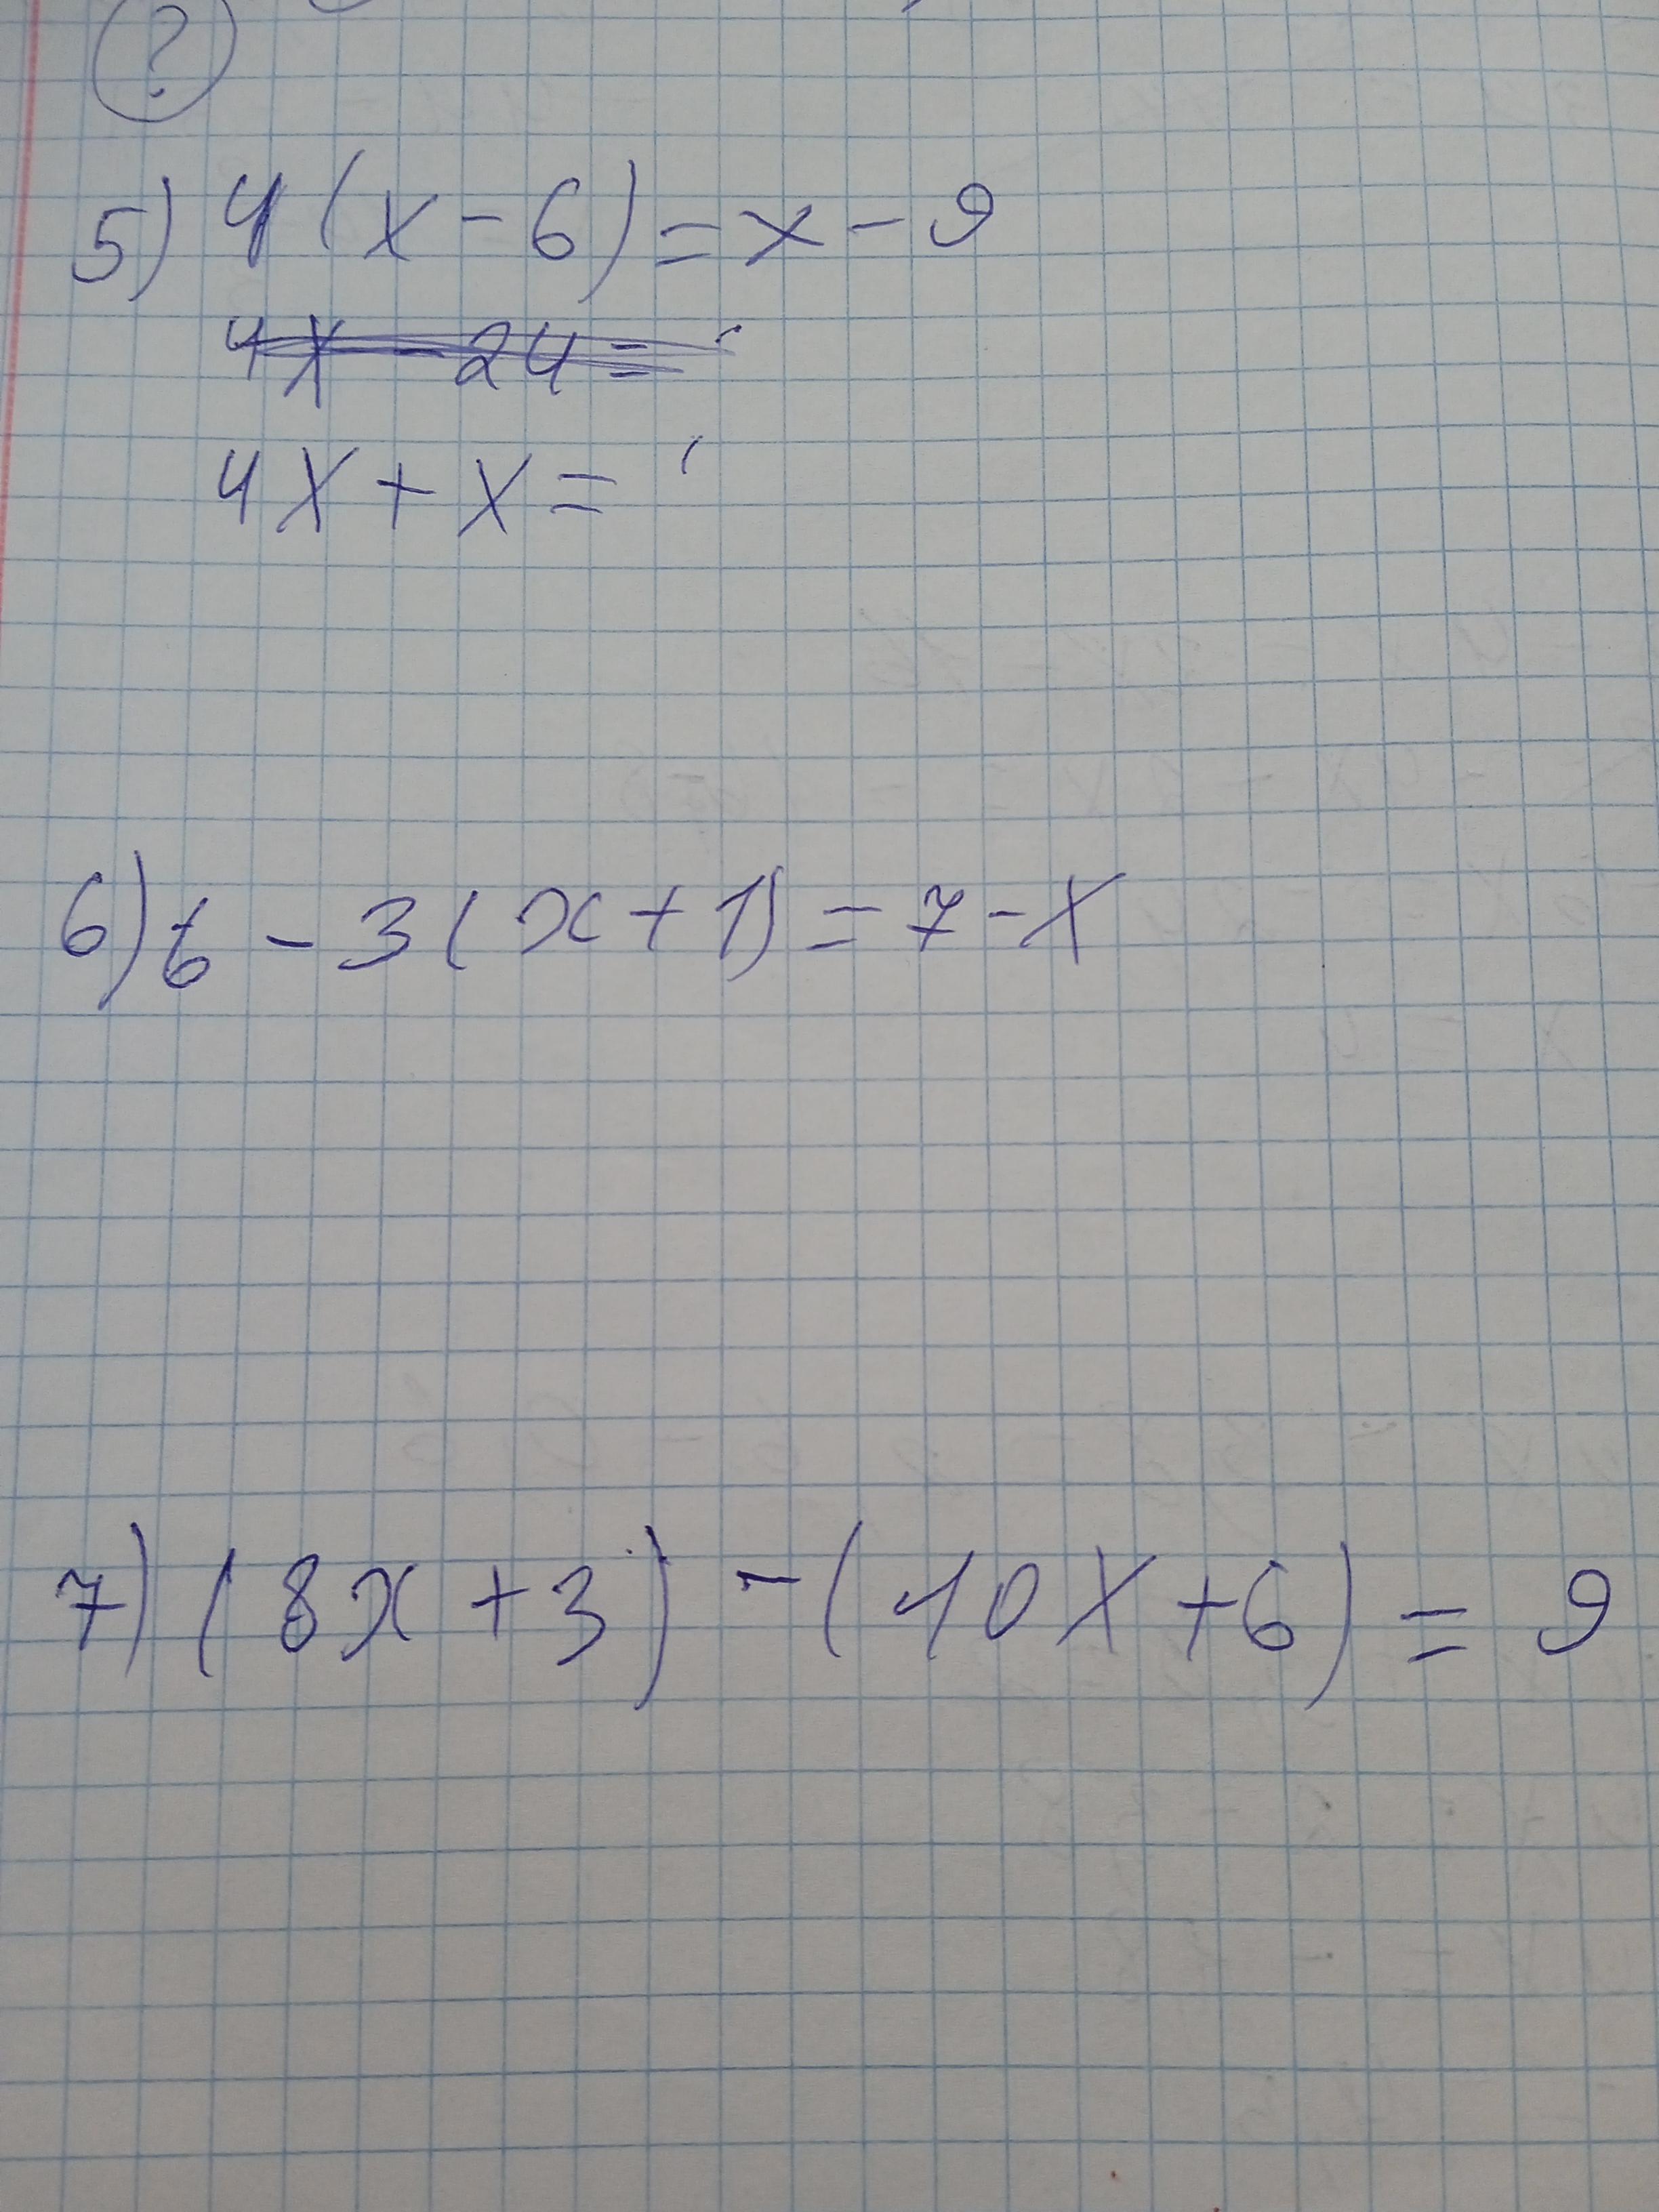 ?
5) 4(x-6)=x-9
4x-24=
4x+x=
6) 6-3(x+1)=7-x
7) (8x+3)-(10x+6)=9